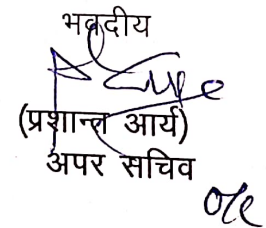 भवदीय
(प्रशान्त आर्य)
अपर सचिव